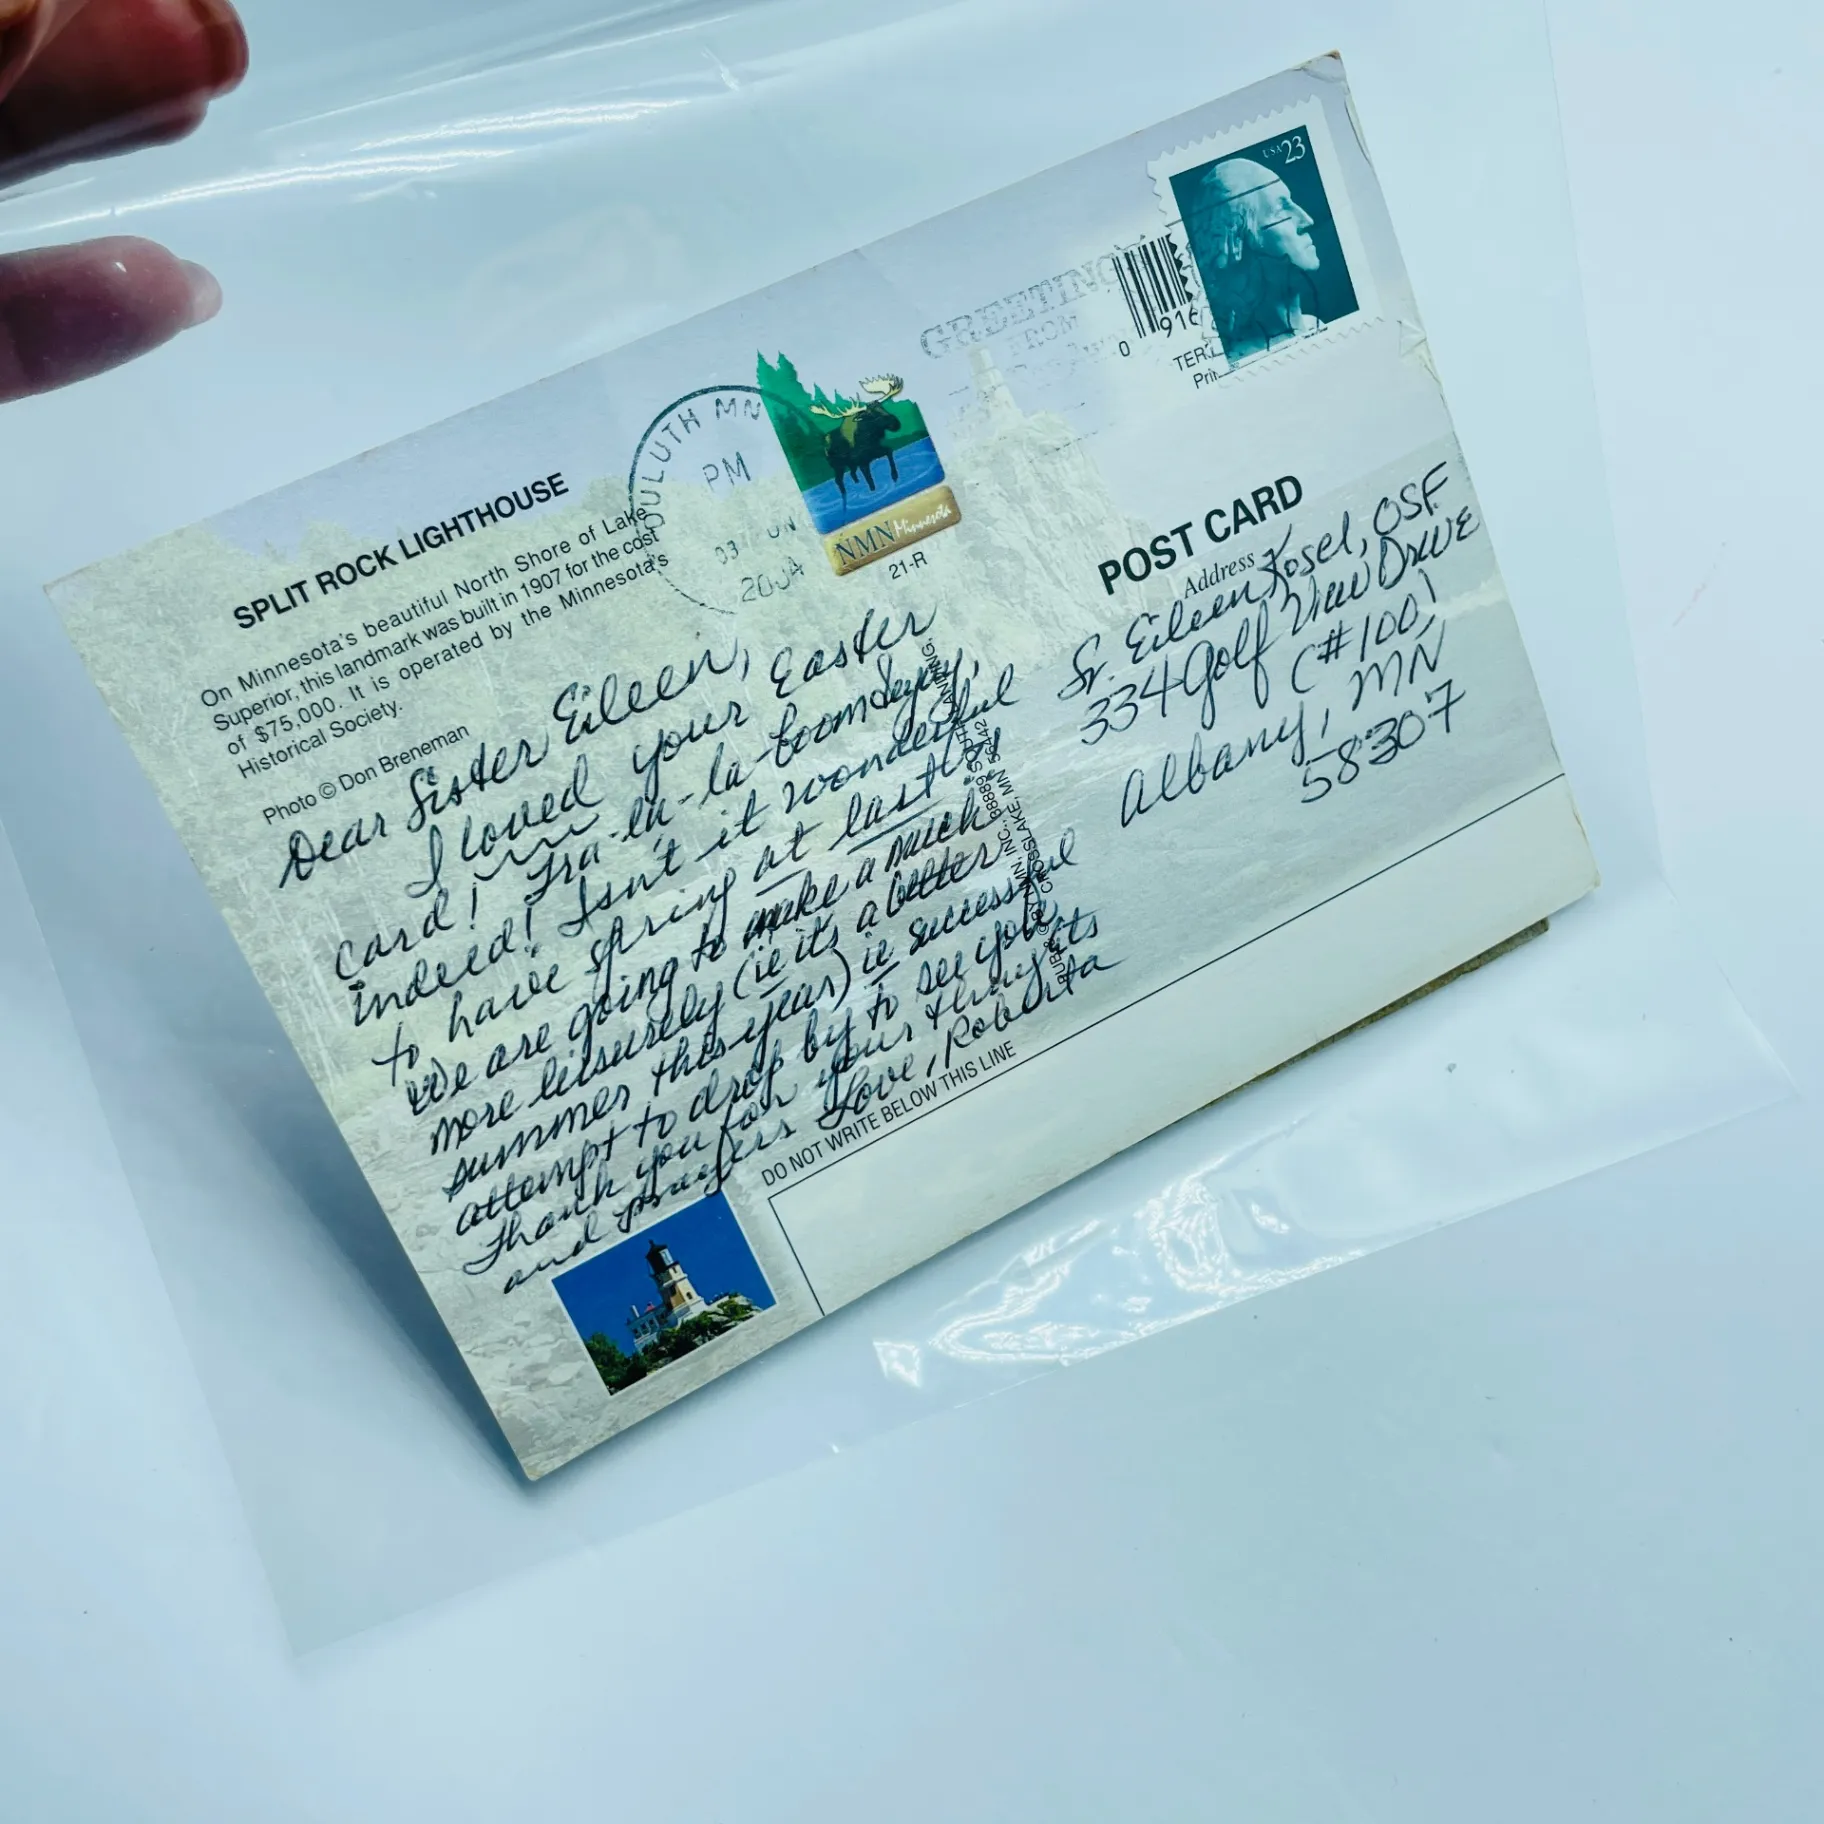 SPLIT ROCK LIGHTHOUSE
On Minnesota's beautiful North Shore of Lake
Superior, this landmark was built in 1907 for the cost
of $75,000. It is operated by the Minnesota's
Historical Society.
Photo © Don Breneman
DULUTH MN
PM
03 JUN
2004
NMN Minnesota
21-R
GREETING
FROM
USA 23
0 916
TER
Prin
POST CARD
Address
Sr. Eileen Kosel, OSF
334 Golf View Drive
(#100)
Albany, MN
58307
Dear Sister Eileen,
I loved your Easter
card! Tra-la-la-boomdeyey,
indeed! Isn't it wonderful
to have spring at last!!
We are going to make a much
more liesurely (ie it's a better
summer this year) ie successful
attempt to drop by to see you.
Thank you for your thoughts
and prayers Love, Roberta
NMN, INC., 38889 SOUTH LANDING,
CROSSLAKE, MN 56442
DO NOT WRITE BELOW THIS LINE